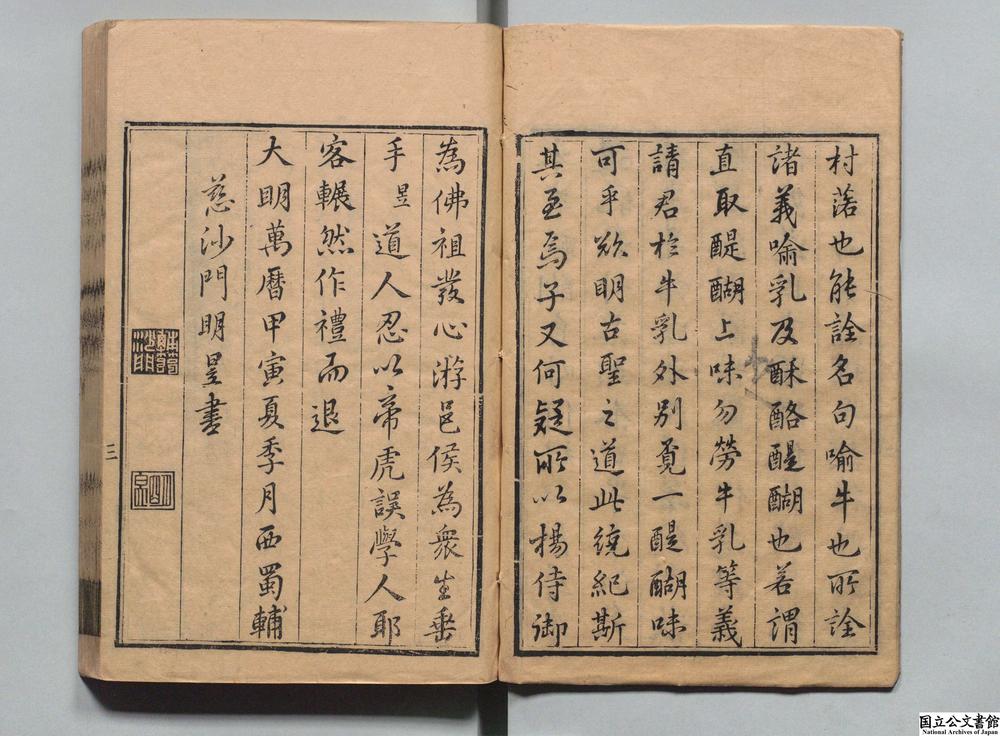 村落也能詮名句喻牛也所詮
諸義喻乳及酥酪醍醐也若謂
直取醍醐上味勿勞牛乳等義
請君於牛乳外別覓一醍醐味
可乎欲明古聖之道此綂紀斯
其至焉子又何疑所以楊侍御
為佛祖發心游邑侯為衆生垂
手昱道人忍以帝虎誤學人耶
客輾然作禮而退
大明萬曆甲寅夏季月西蜀輔
慈沙門明昱書
三
国立公文書館
National Archives of Japan